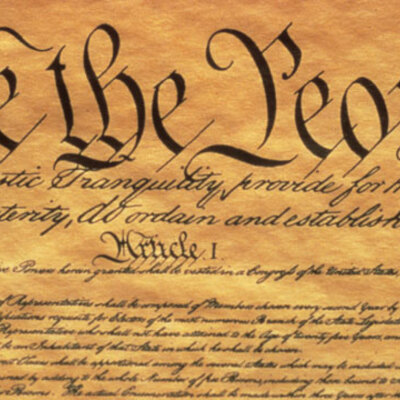 e the Peo
stic Tranquility, provide for th
terity, do ordain and establish
Article. I.
ve Powers herein granted shall be vested in a Congress of the United States,
of Representatives shall be composed of Members chosen every second Year by
requisite for Electors of the most numerous Branch of the State Legislat
Representative who shall not have attained to the Age of twenty five Years, and
be an Inhabitant of that State in which he shall be chosen.
Taxes shall be apportioned among the several States which may be included
by adding to the whole Number of free Persons, including those bound to
The actual Enumeration shall be made within three Years after